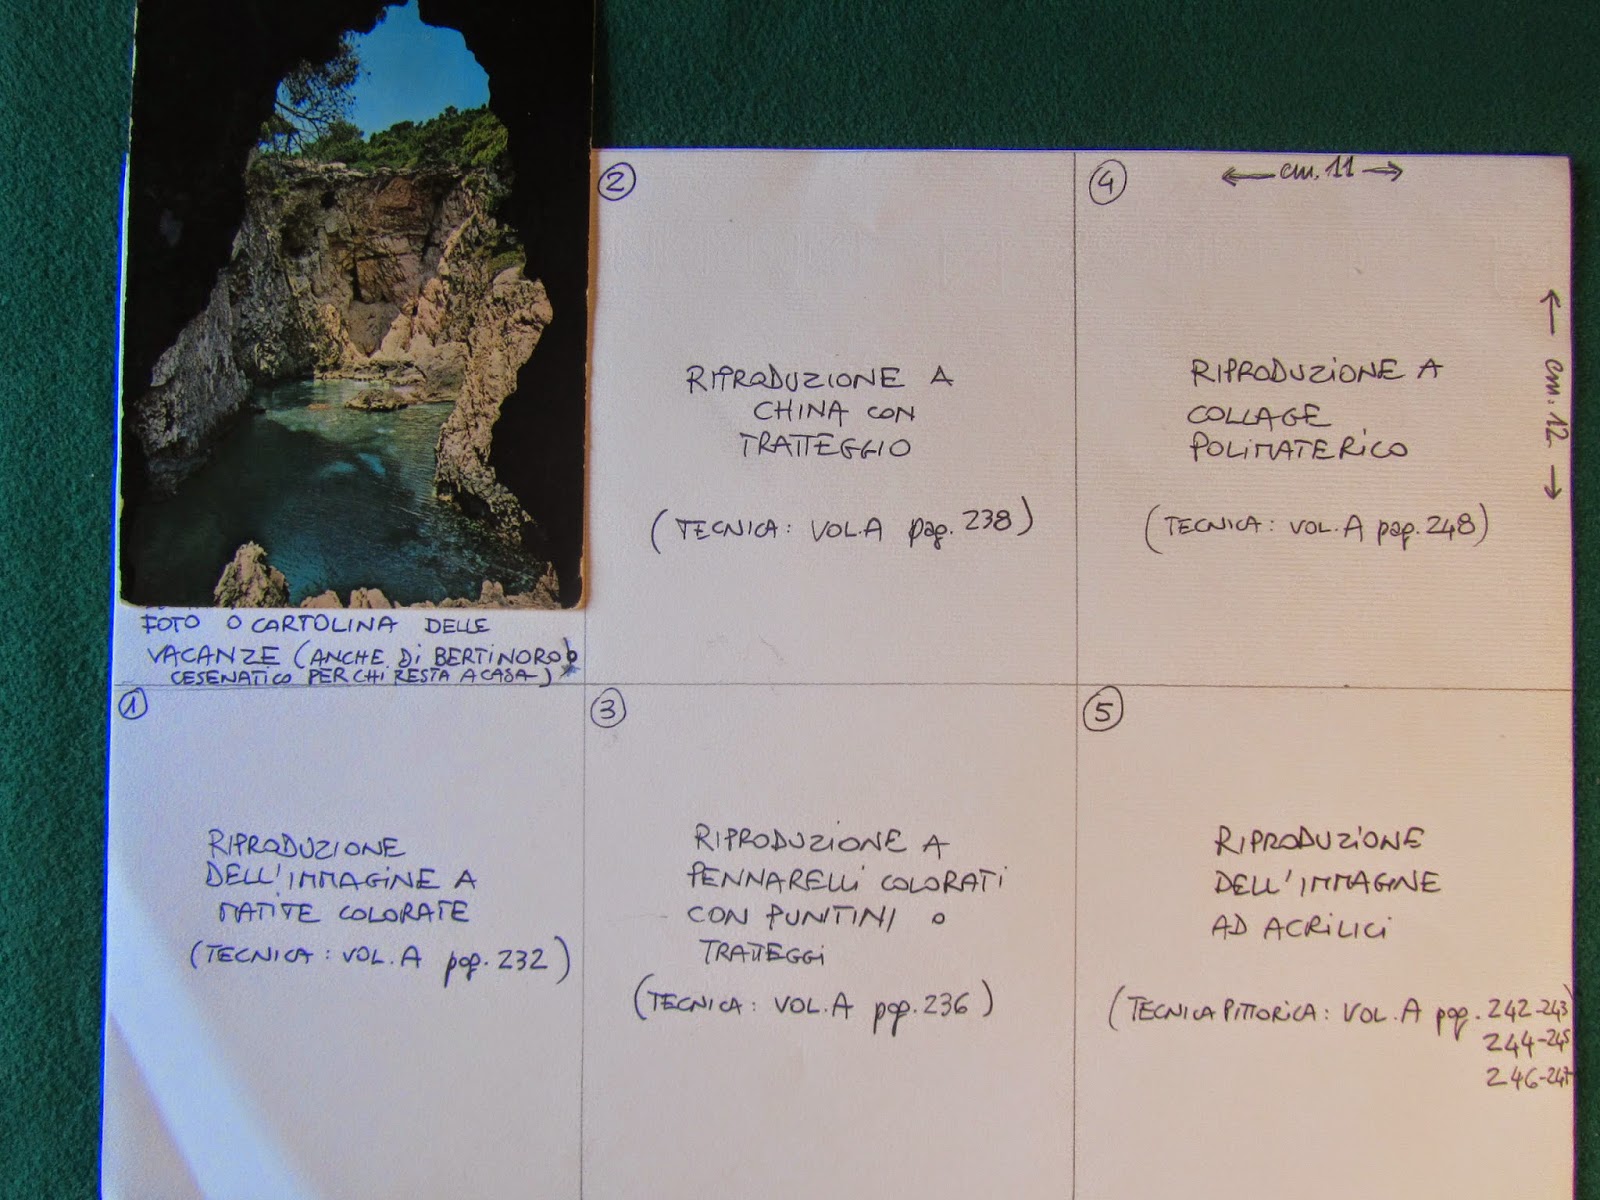 FOTO O CARTOLINA DELLE
VACANZE (ANCHE DI BERTINORO O
CESENATICO PER CHI RESTA A CASA)
1
RIPRODUZIONE
DELL'IMMAGINE A
MATITE COLORATE
(TECNICA: VOL. A pag. 232)
2
RIPRODUZIONE A
CHINA CON
TRATTEGGIO
(TECNICA: VOL.A pag. 238)
3
RIPRODUZIONE A
PENNARELLI COLORATI
CON PUNTINI O
TRATTEGGI
(TECNICA: VOL.A pag. 236)
4
cm. 11
cm. 12
RIPRODUZIONE A
COLLAGE
POLIMATERICO
(TECNICA: VOL.A pag. 248)
5
RIPRODUZIONE
DELL'IMMAGINE
AD ACRILICI
(TECNICA PITTORICA: VOL. A pag. 242-243
244-245
246-247